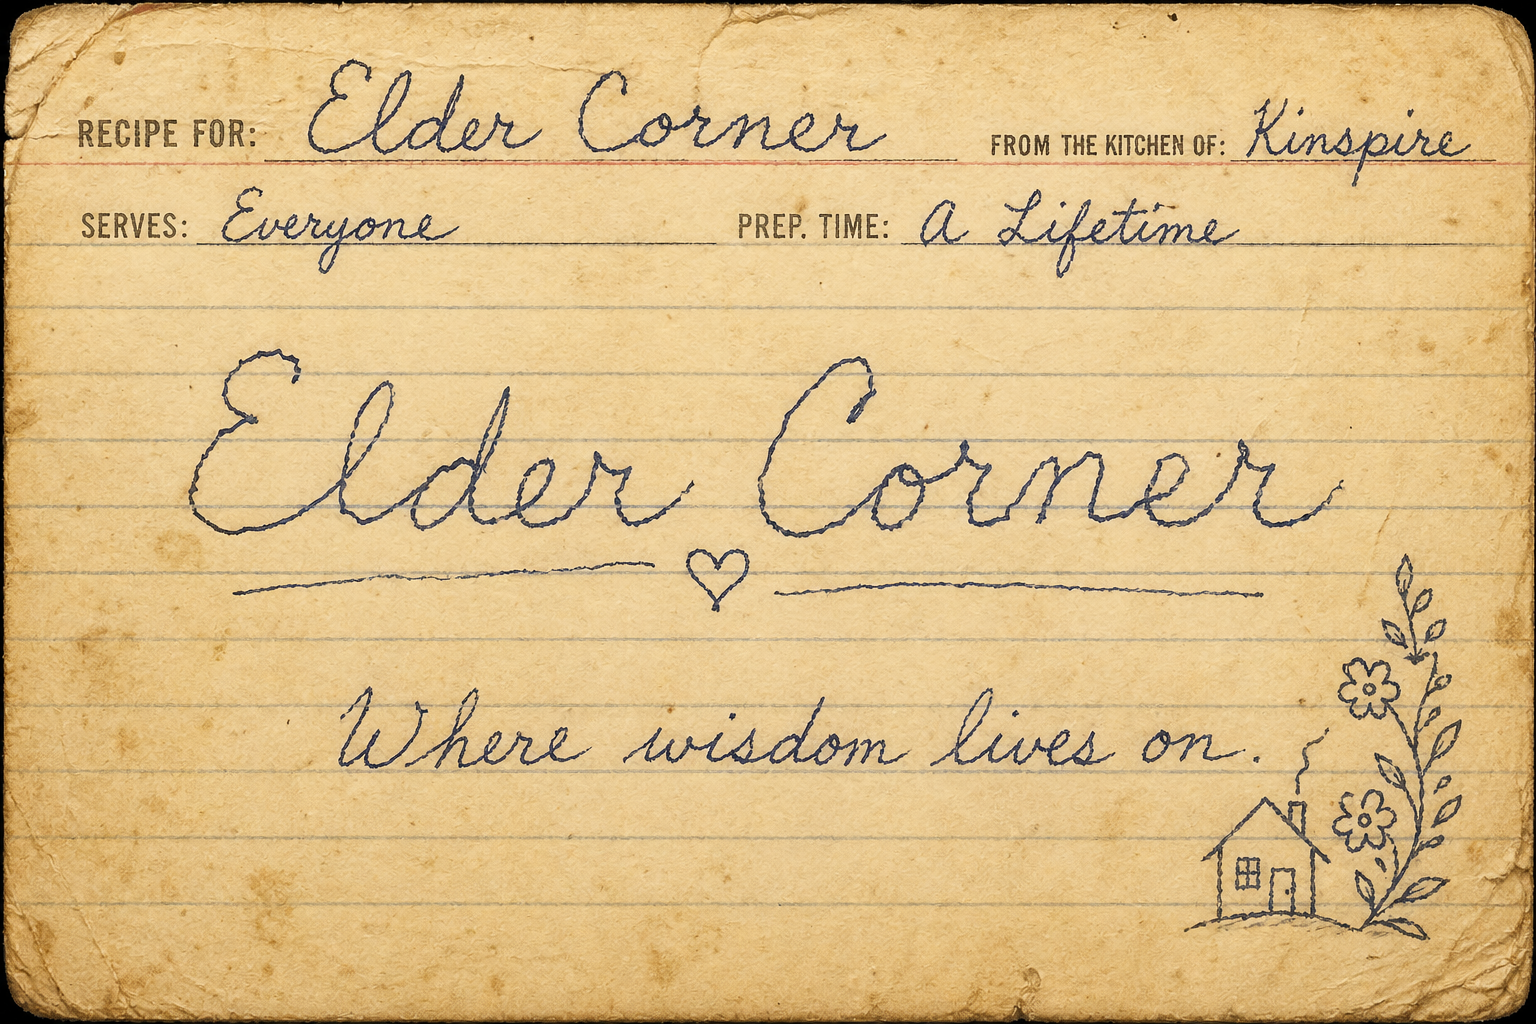 RECIPE FOR: Elder Corner FROM THE KITCHEN OF: Kinspire
SERVES: Everyone PREP. TIME: A Lifetime
Elder Corner
Where wisdom lives on.